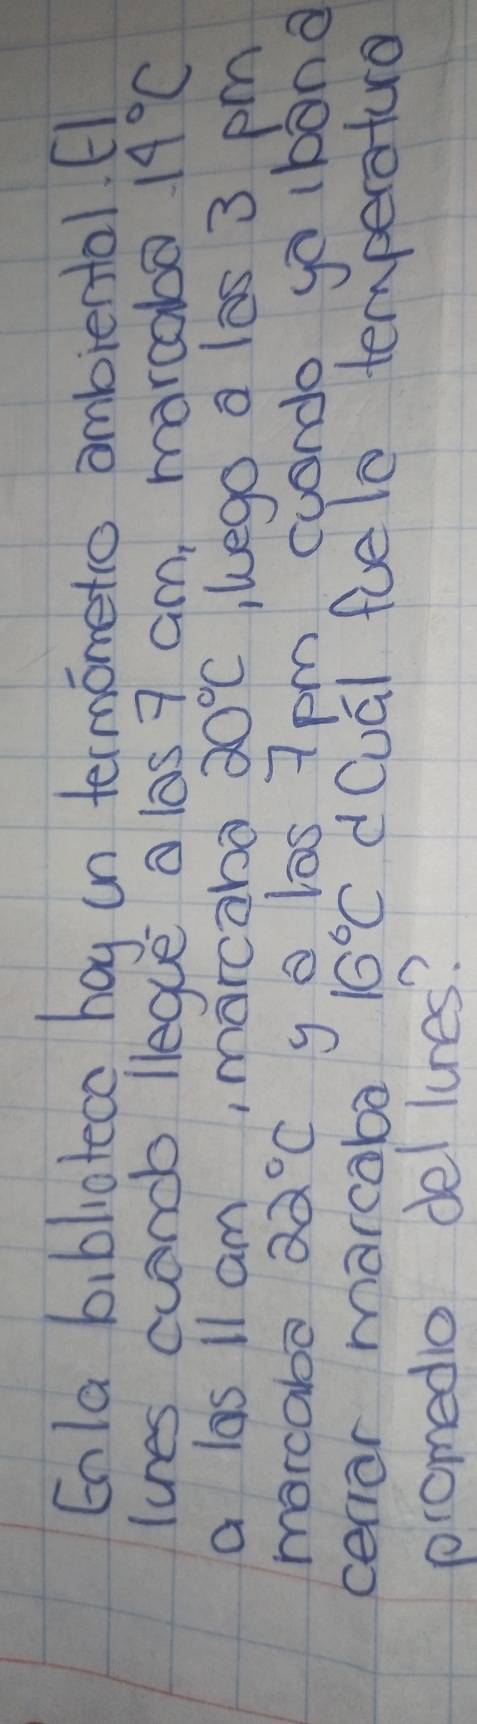 En la biblioteca hay un termómetro ambiental. El
lunes cuando llegué a las 7 am, marcaba 14°C
a las 11 am, marcaba 20°C, luego a las 3 pm
marcaba 22°C y a las 7 pm cuando ya iban a
cerrar marcaba 16°C ¿Cuál fue la temperatura
promedio del lunes?